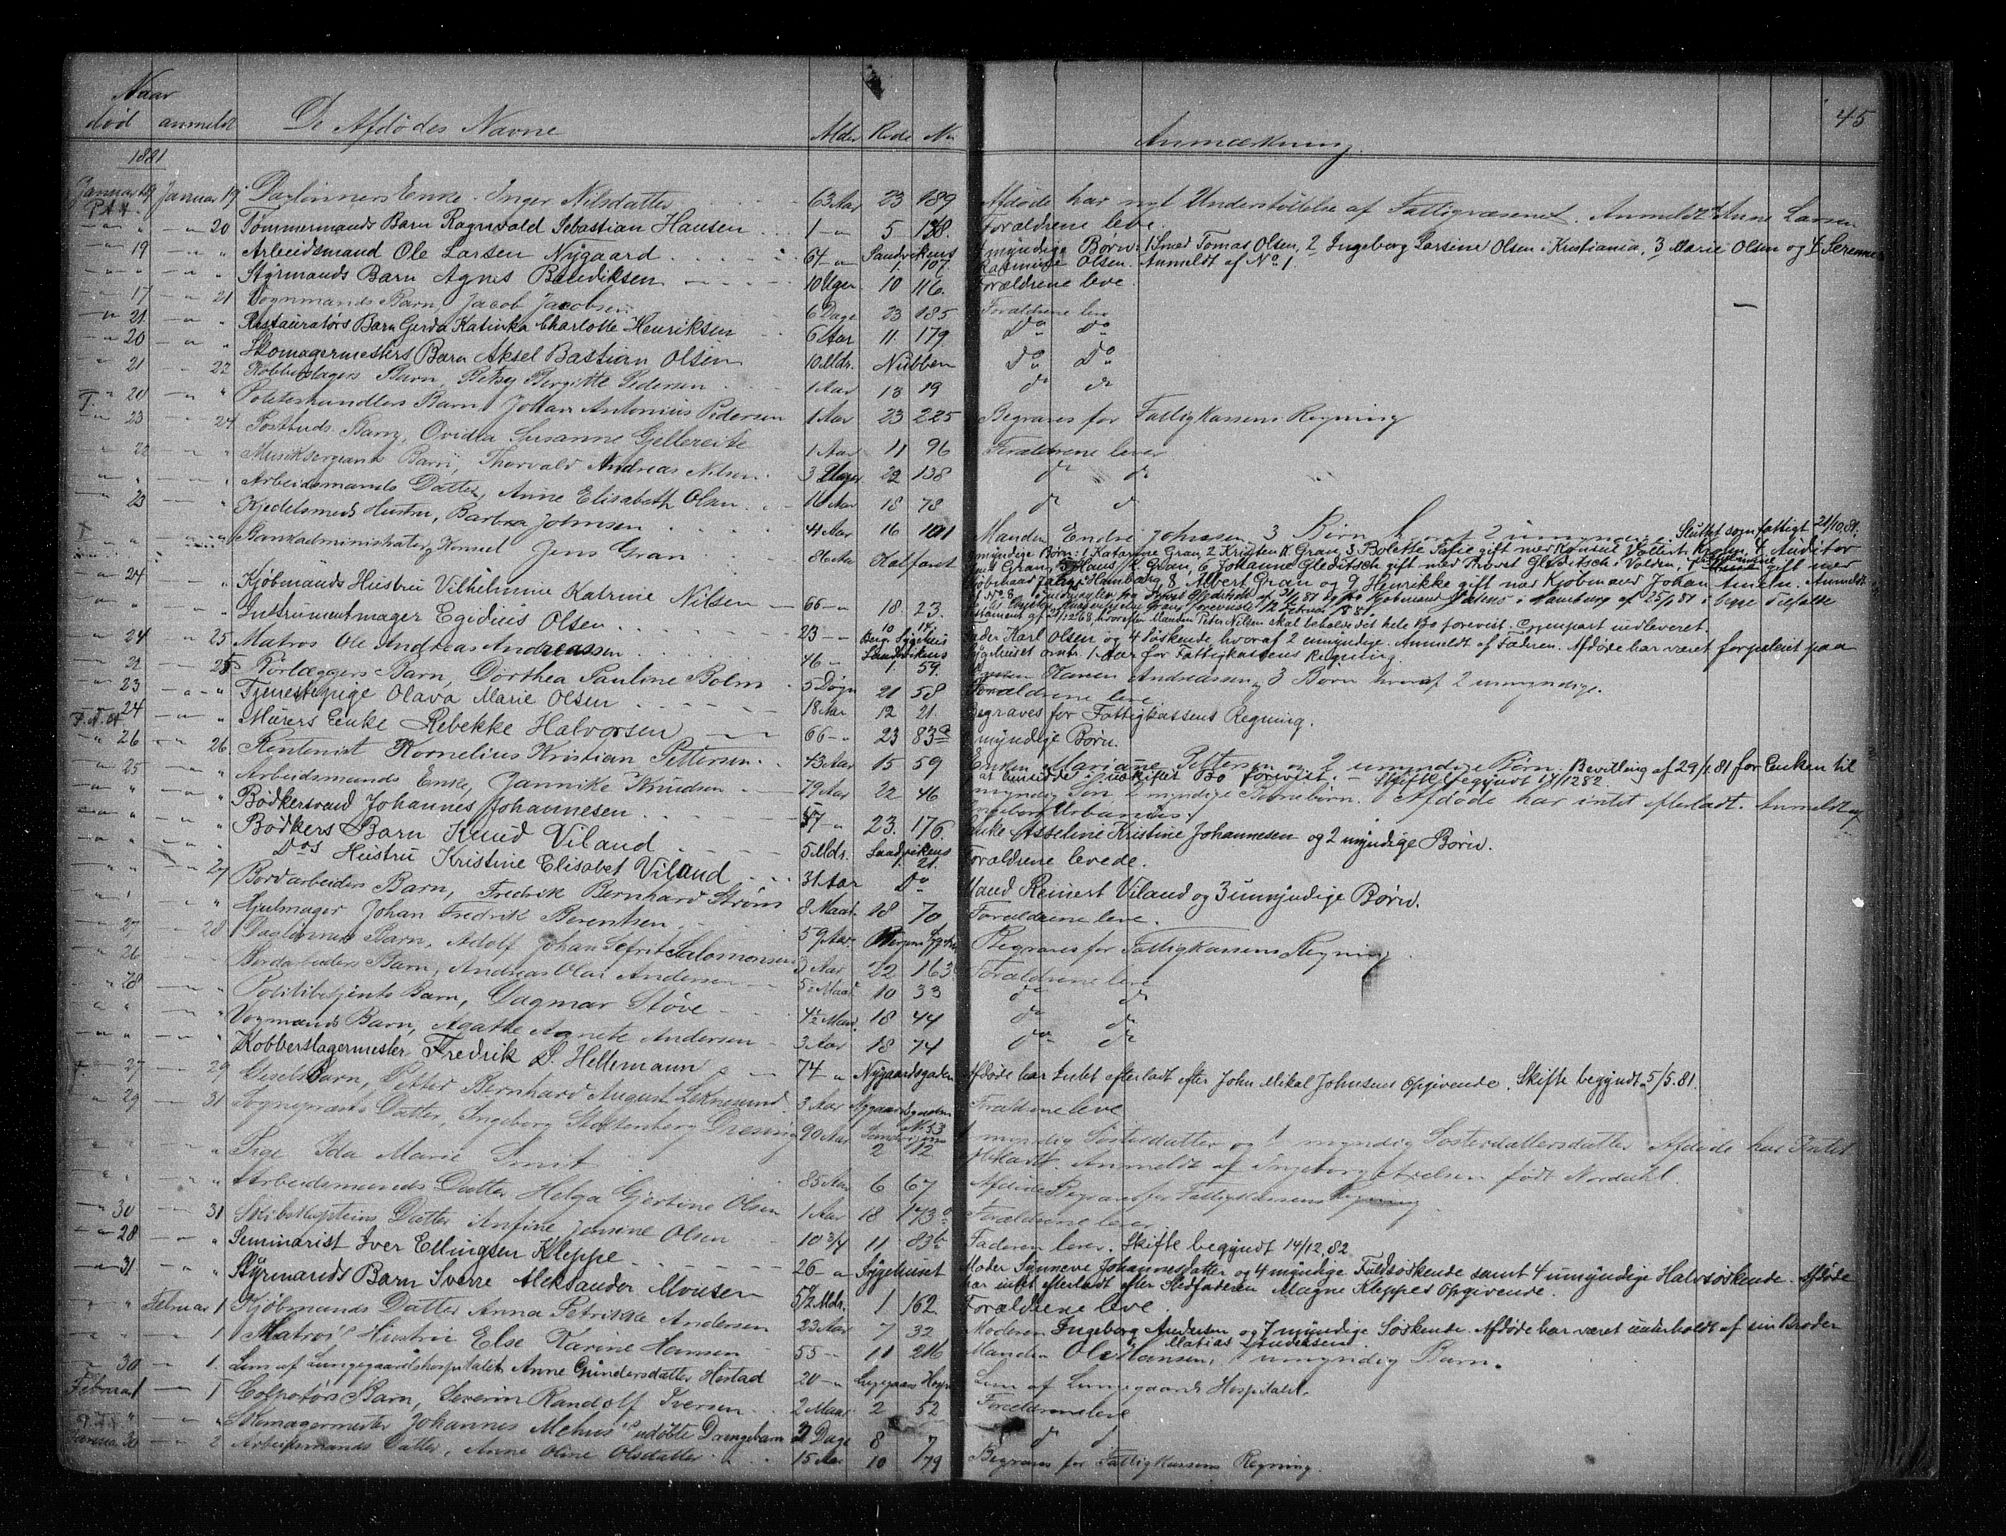 45
Naar
død anmeldt De Afdødes Navne Alder Rode No Anmærkning
1881
Januar 19 Januar 19 Daglønners Enke Inger Nilsdatter 63 Aar 23 189 Afdøde har nydt Understøttelse af Fattigvæsenet. Anmeldt Anne Larsen
" 20 Tømmermands Barn Ragnvald Sebastian Hansen 1 " 5 138 Forældrene leve.
19 " Arbeidsmand Ole Larsen Nygaard 64 " Sandvikens 1. 107. myndige Børn: 1 Smed Tomas Olsen, 2 Ingeborg Larsine Olsen i Kristiania, 3 Marie Olsen og
Olsen. Anmeldt af No 1.
" " Styrmands Barn Agnes Bendiksen 10 Uger 10 116. Forældrene leve.
17 21 Vognmands Barn, Jacob Jacobsen 6 Dage 23 185 Forældrene lev
21 " Restauratørs Barn Gerda Katinka Charlotte Henriksen 6 Aar 11. 179 Do Do
20 " Skomagermesters Barn Aksel Bastian Olsen 10 Mdr. Nubben Do Do
21 22 Kobberslagers Barn, Betsy Bergitte Pedersen 1 Aar 13 19 do do
20 " Johan Antonius Pedersen 1 Aar 23 225 Begraves for Fattigkassens Regning
23 24 Postbuds Barn, Ovidia Susanne Gjellereite 1 Aar 11 96 Forældrene lever
22 " Musiksergeants Barn, Thorvald Andreas Nilsen 3 22 138 do do
" Arbeidsmands Datter, Anne Elisabeth Olsen 16 Aar 18 78 do do
23 " Kjedelsmeds Hustru, Barbra Johnsen 41 Aar 16 101 Manden Endre Johnsen 3 Børn hvoraf 2 umyndige. Sluttet som fattigt 21/10 81.
" " Bankadministrator, Konsul Jens Gran 86 Aar Kalfaret myndige Børn: 1 Katarine Gran, 2 Kristen K Gran, 3 Bolette Sofie gift med Konsul Vollert Krohn, 4 Auditør
Jens Gran, 5 Hans K Gran, 6 Johanne Gleditsch gift med Provst Gleditsch i Volden, gift med
i Hamburg, 8 Albert Gran og 9 Henrikke gift med Kjøbmand Johan Anmeldt
24 " Kjøbmands Hustru Vilhelmine Katrine Nilsen 66 " 18 23 hvorefter Manden Peter Nilsen skal beholde det hele Bo forevist. Gjenpart indleveret.
" " Instrumentmager Egidius Olsen 23 " 10 14. Berg. Sygehus Fader Karl Olsen og 4 Søskende, hvoraf 2 umyndige. Anmeldt af Faderen. Afdøde har været forpleiet paa
Sygehuset omtr. 1 Aar for Fattigkassens Regning.
24 25 Matros Ole Andreas Andreassen 46 " Sandvikens 1. 59. Karen Andreassen og 3 Børn hvoraf 2 umyndige.
21 25 Rørlæggers Barn, Dorthea Pauline Bolm 5 Døgn 21 58 Forældrene leve
23 " Tjenestepige Olava Marie Olsen 18 Aar 12 21. Begraves for Fattigkassens Regning.
24 " Murers Enke Rebekke Halvorsen 66 " 23 83a myndige Børn.
26 26 Rentenist Kornelius Kristian Pettersen 43 Aar 15 59 Enken Mariane Pettersen og 2 umyndige Børn. Bevilling af 29/1 81 for Enken til
at hensidde i uskiftet Bo forevist. Skifte begyndt 14/12 82.
25 " Arbeidsmands Enke Jannike Knudsen 79 Aar 22 46 myndig Søn, 2 myndige Børnebørn. Afdøde har intet efterladt. Anmeldt af
" " Bødkersvend Johannes Johannesen 57 " 23. 176 Enke Asseline Kristine Johannesen og 2 myndige Børn.
" " Bødkers Barn Knud Viland 5 Mdr. Sandvikens 1. 21. Forældrene levede.
" " Dos Hustru Kristine Elisabet Viland 31 Aar Do Mand Reinert Viland og 3 umyndige Børn.
" 27 Bordarbeiders Barn, Fredrik Bernhard Strøm 8 Maan 18 70 Forældrene leve.
" " Hjulmager Johan Fredrik Berentsen 59 Aar Bergens Sygehus Begraves for Fattigkassens Regning
27 28 Daglønners Barn, Adolf Johan Sefrit Salomonsen 3 Aar 22 163 Forældrene leve
26 " Bordarbeiders Barn, Andreas Olai Andersen 5 Maan 10 33 do do
28 " Politibetjents Barn, Dagmar Støve 4½ Maan 18 44 do do
" " Vognmands Barn, Agathe Agnete Andersen 3 Aar 18 74 do do
" " Kobberslagermester Fredrik D. Hellemann 74 " Nygaardsgaden Afdøde har Intet efterladt efter John Mikal Johnsens Opgivende. Skifte begyndt 5/5.81.
27 29 Barn, Petter Bernhard August Leknesund 3 Aar Nygaardsgaden No 53 Forældrene leve
29 31 Sogneprests Datter, Ingeborg Stoltenberg Dresing 90 Aar 2 112 1 myndig Søsterdatter og 1 myndig Søsterdattersdatter. Afdøde har Intet
efterladt. Anmeldt af Ingeborg Axelsen født Nordahl.
" " Pige Ida Marie Smit 85 Aar 6 67 Afdøde Begraves for Fattigkassens Regning
" " Arbeidsmands Datter Helga Gjertine Olsen 1 Aar 18 173 Forældrene lever
30 31 Skibskapteins Datter Anfine Jensine Olsen 10 3/4 11 83b Faderen lever. Skifte begyndt 14/12.82
28 " Seminarist Iver Ellingsen Kleppe 26 " Sygehuset Moder Synneve Johannesdatter og 4 myndige Fuldsøskende samt 4 umyndige Halvsøskende. Afdøde
har intet efterladt efter Stedfaderen Magne Kleppes Opgivende.
31 " Styrmands Barn Sverre Aleksander Monsen 5½ Mdr. 1 162 Forældrene leve.
" Februar 1 Kjøbmands Datter Anna Petrikke Andersen 23 Aar 7 32 Moderen Ingeborg Andersen og 7 myndige Søskende. Afdøde har været underholdt af sin Broder
Matias Andersen.
" 1 Matros Hustru Else Karine Hansen 55 " 11 216 Manden Ole Hansen, 1 umyndig Barn.
30 1. Lem af Lungegaardshospitalet Anne Gundersdatter Herstad 20 " Lungegaards Hosp. Lem af Lungegaards Hospitalet.
Februar 1 1 Colportørs Barn, Severin Randolf Iversen 2 Maan 2 52 Forældrene leve
" " Skomagermester Johannes Mehus's udøbte Drengebarn 2 Dage 8 7 do do
Januar 30 2 Arbeidsmands Datter, Anne Oline Olsdatter 15 Aar 10 179 Begraves for Fattigkassens Regning.